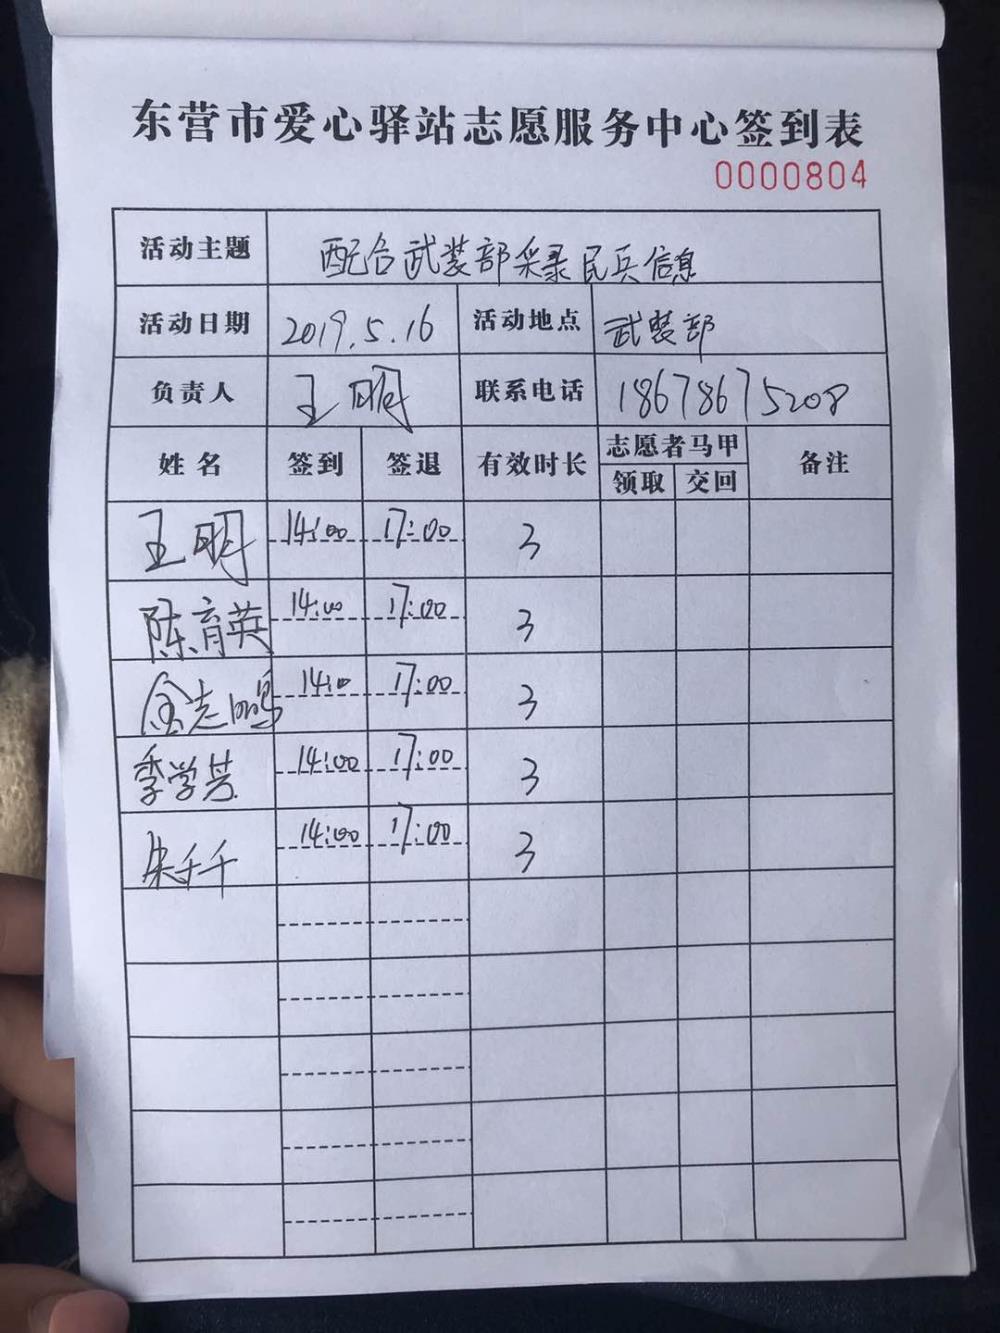 东营市爱心驿站志愿服务中心签到表
0000804
活动主题 配合武装部采录民兵信息
活动日期 2019.5.16 活动地点 武装部
负责人 王明 联系电话 18678675208
姓名 签到 签退 有效时长 志愿者马甲 备注
领取 交回
王明 14:00 17:00 3
陈育英 14:00 17:00 3
金志鹏 14:00 17:00 3
季学芳 14:00 17:00 3
朱千千 14:00 17:00 3